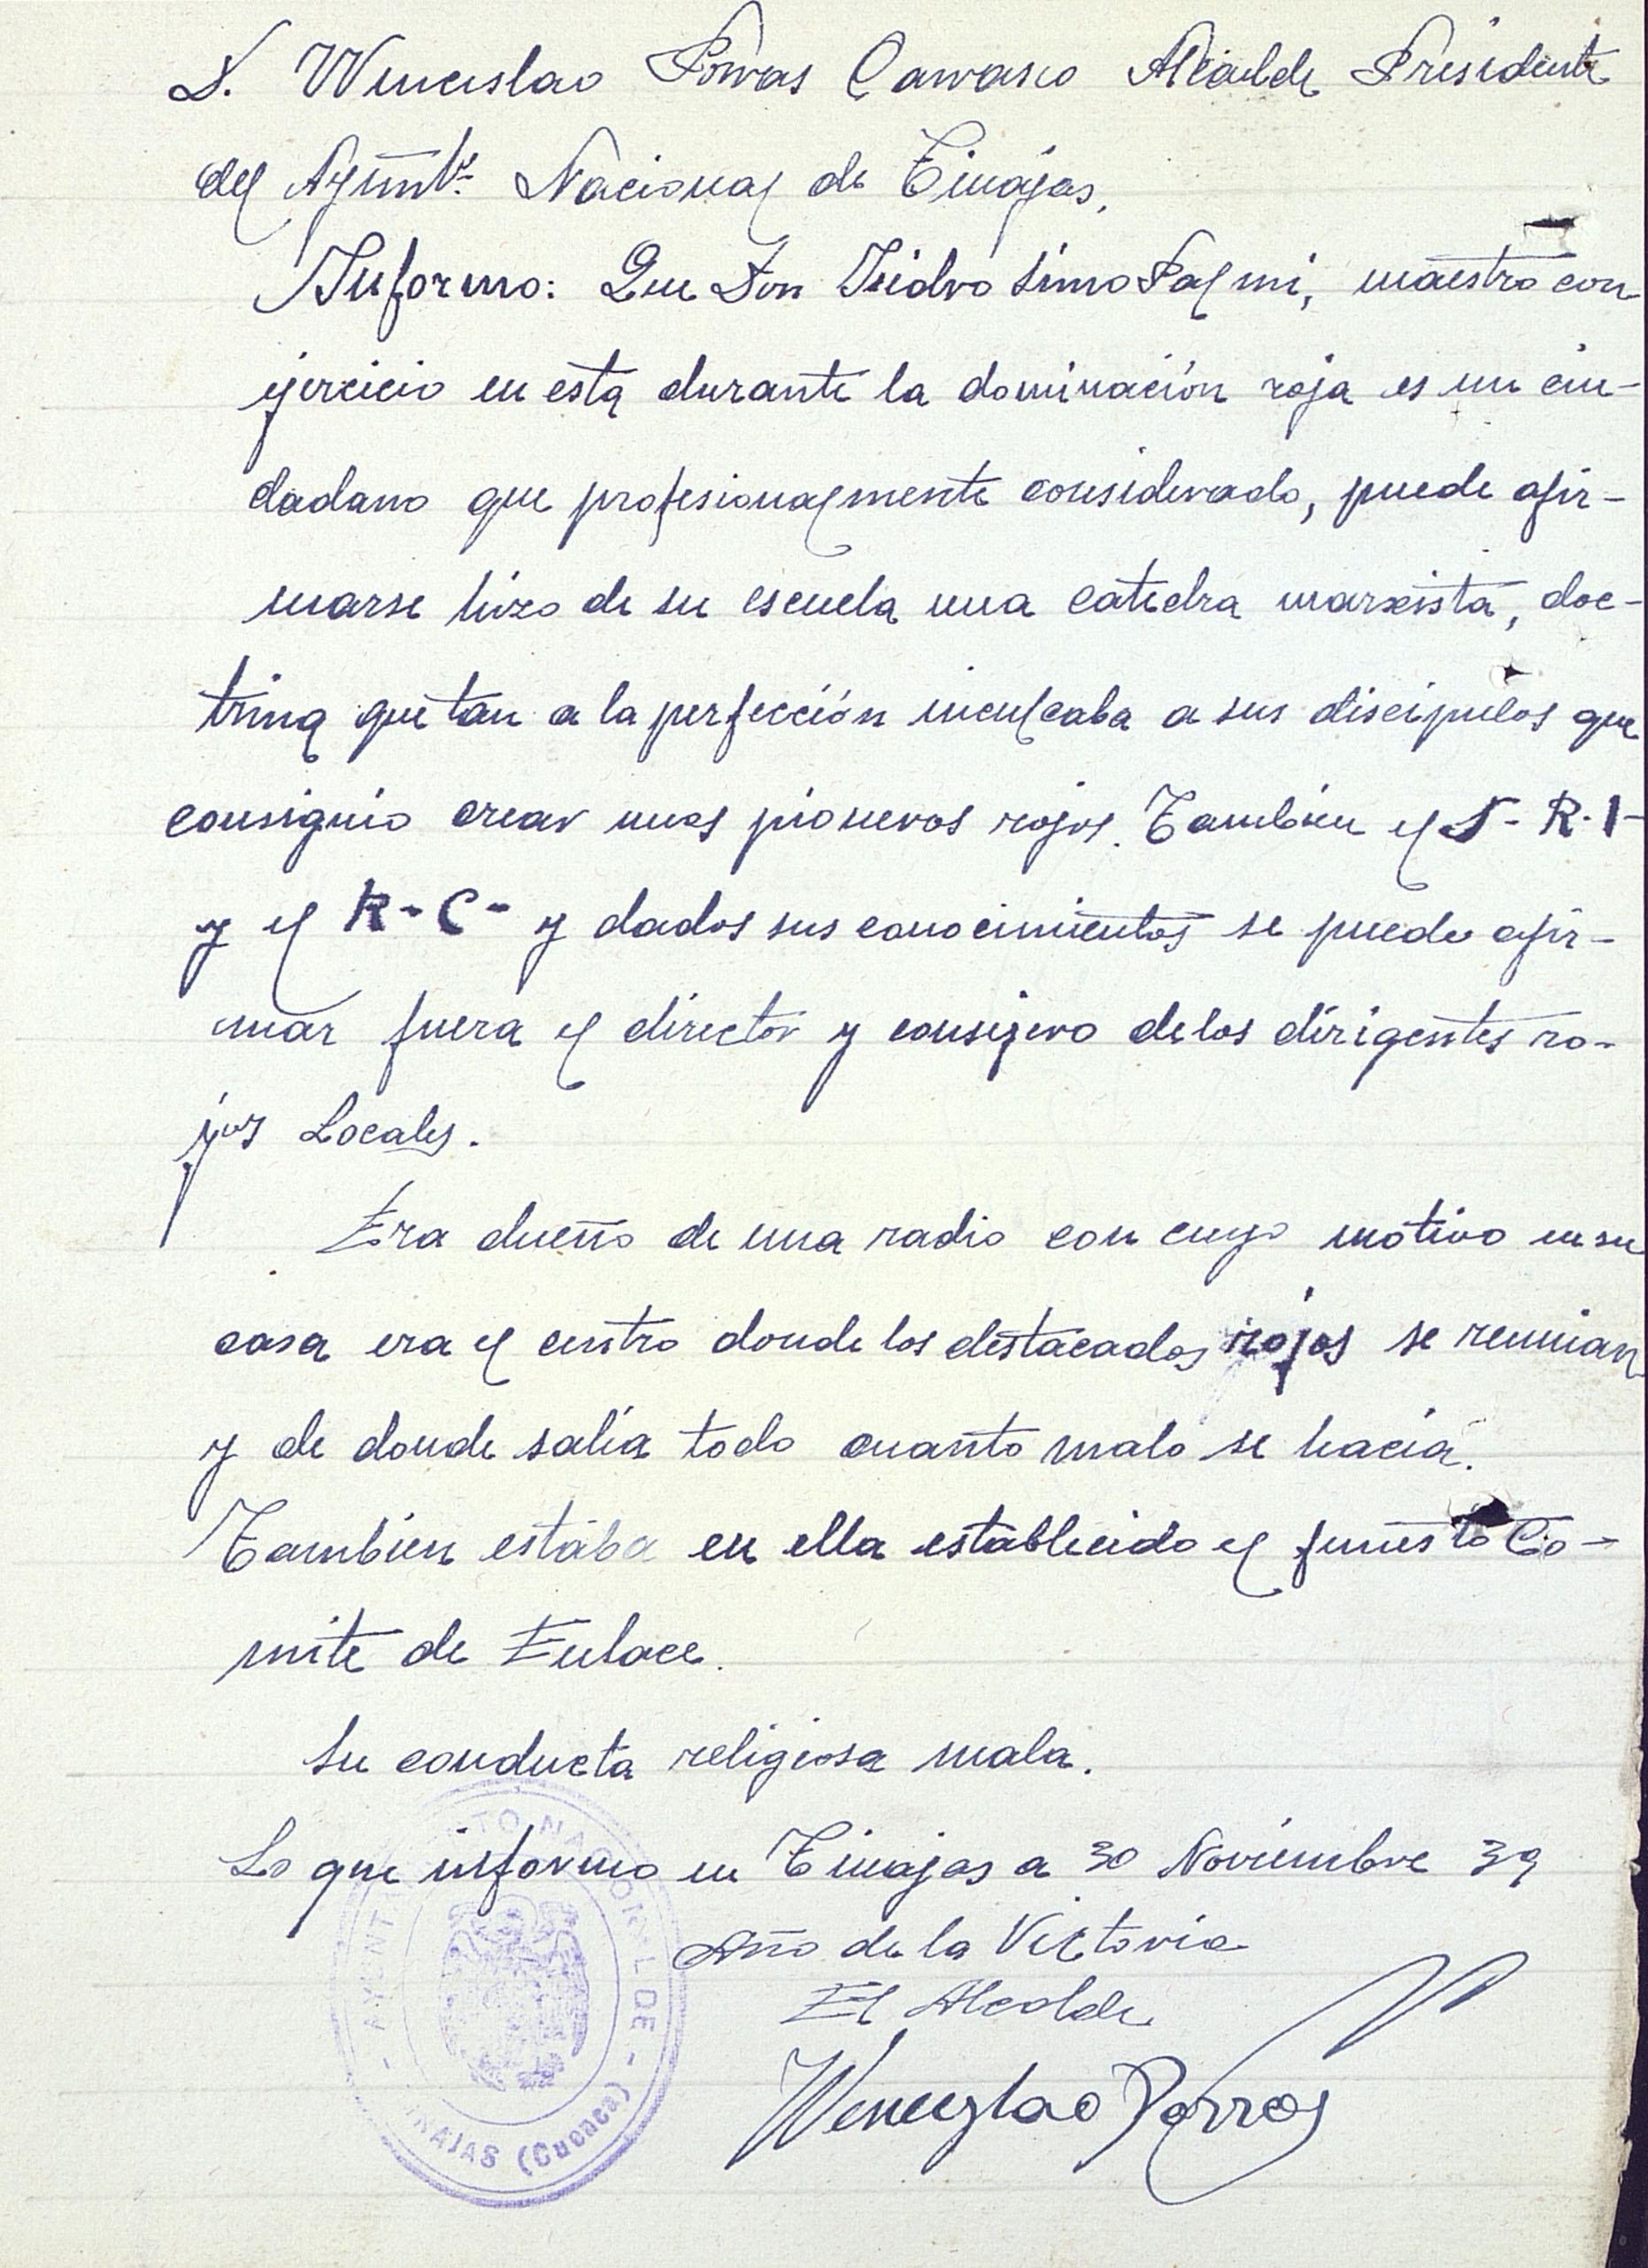 D. Wenceslao Porras Carrasco Alcalde Presidente
del Ayuntº. Nacional de Tinajas.
Informo: Que Don Isidro Simo Palmi, maestro con
ejercicio en esta durante la dominación roja es un ciu-
dadano que profesionalmente considerado, puede afir-
marse hizo de su escuela una catedra marxista, doc-
trina que tan a la perfección inculcaba a sus discipulos que
consiguio crear unos pioneros rojos. También el S-R.I-
y el R-C- y dados sus conocimientos se puede afir-
mar fuera el director y consejero de los dirigentes ro-
jos Locales.
Era dueño de una radio con cuyo motivo en su
casa era el centro donde los destacados rojos se reunian
y de donde salía todo cuanto malo se hacía.
También estaba en ella establecido el funesto Co-
mite de Enlace.
Su conducta religiosa mala.
Lo que informo en Tinajas a 30 Noviembre 39
Año de la Victoria
El Alcalde
Wenceslao Porras
AYUNTA TO NACIONAL DE
- INAJAS (Cuenca) -